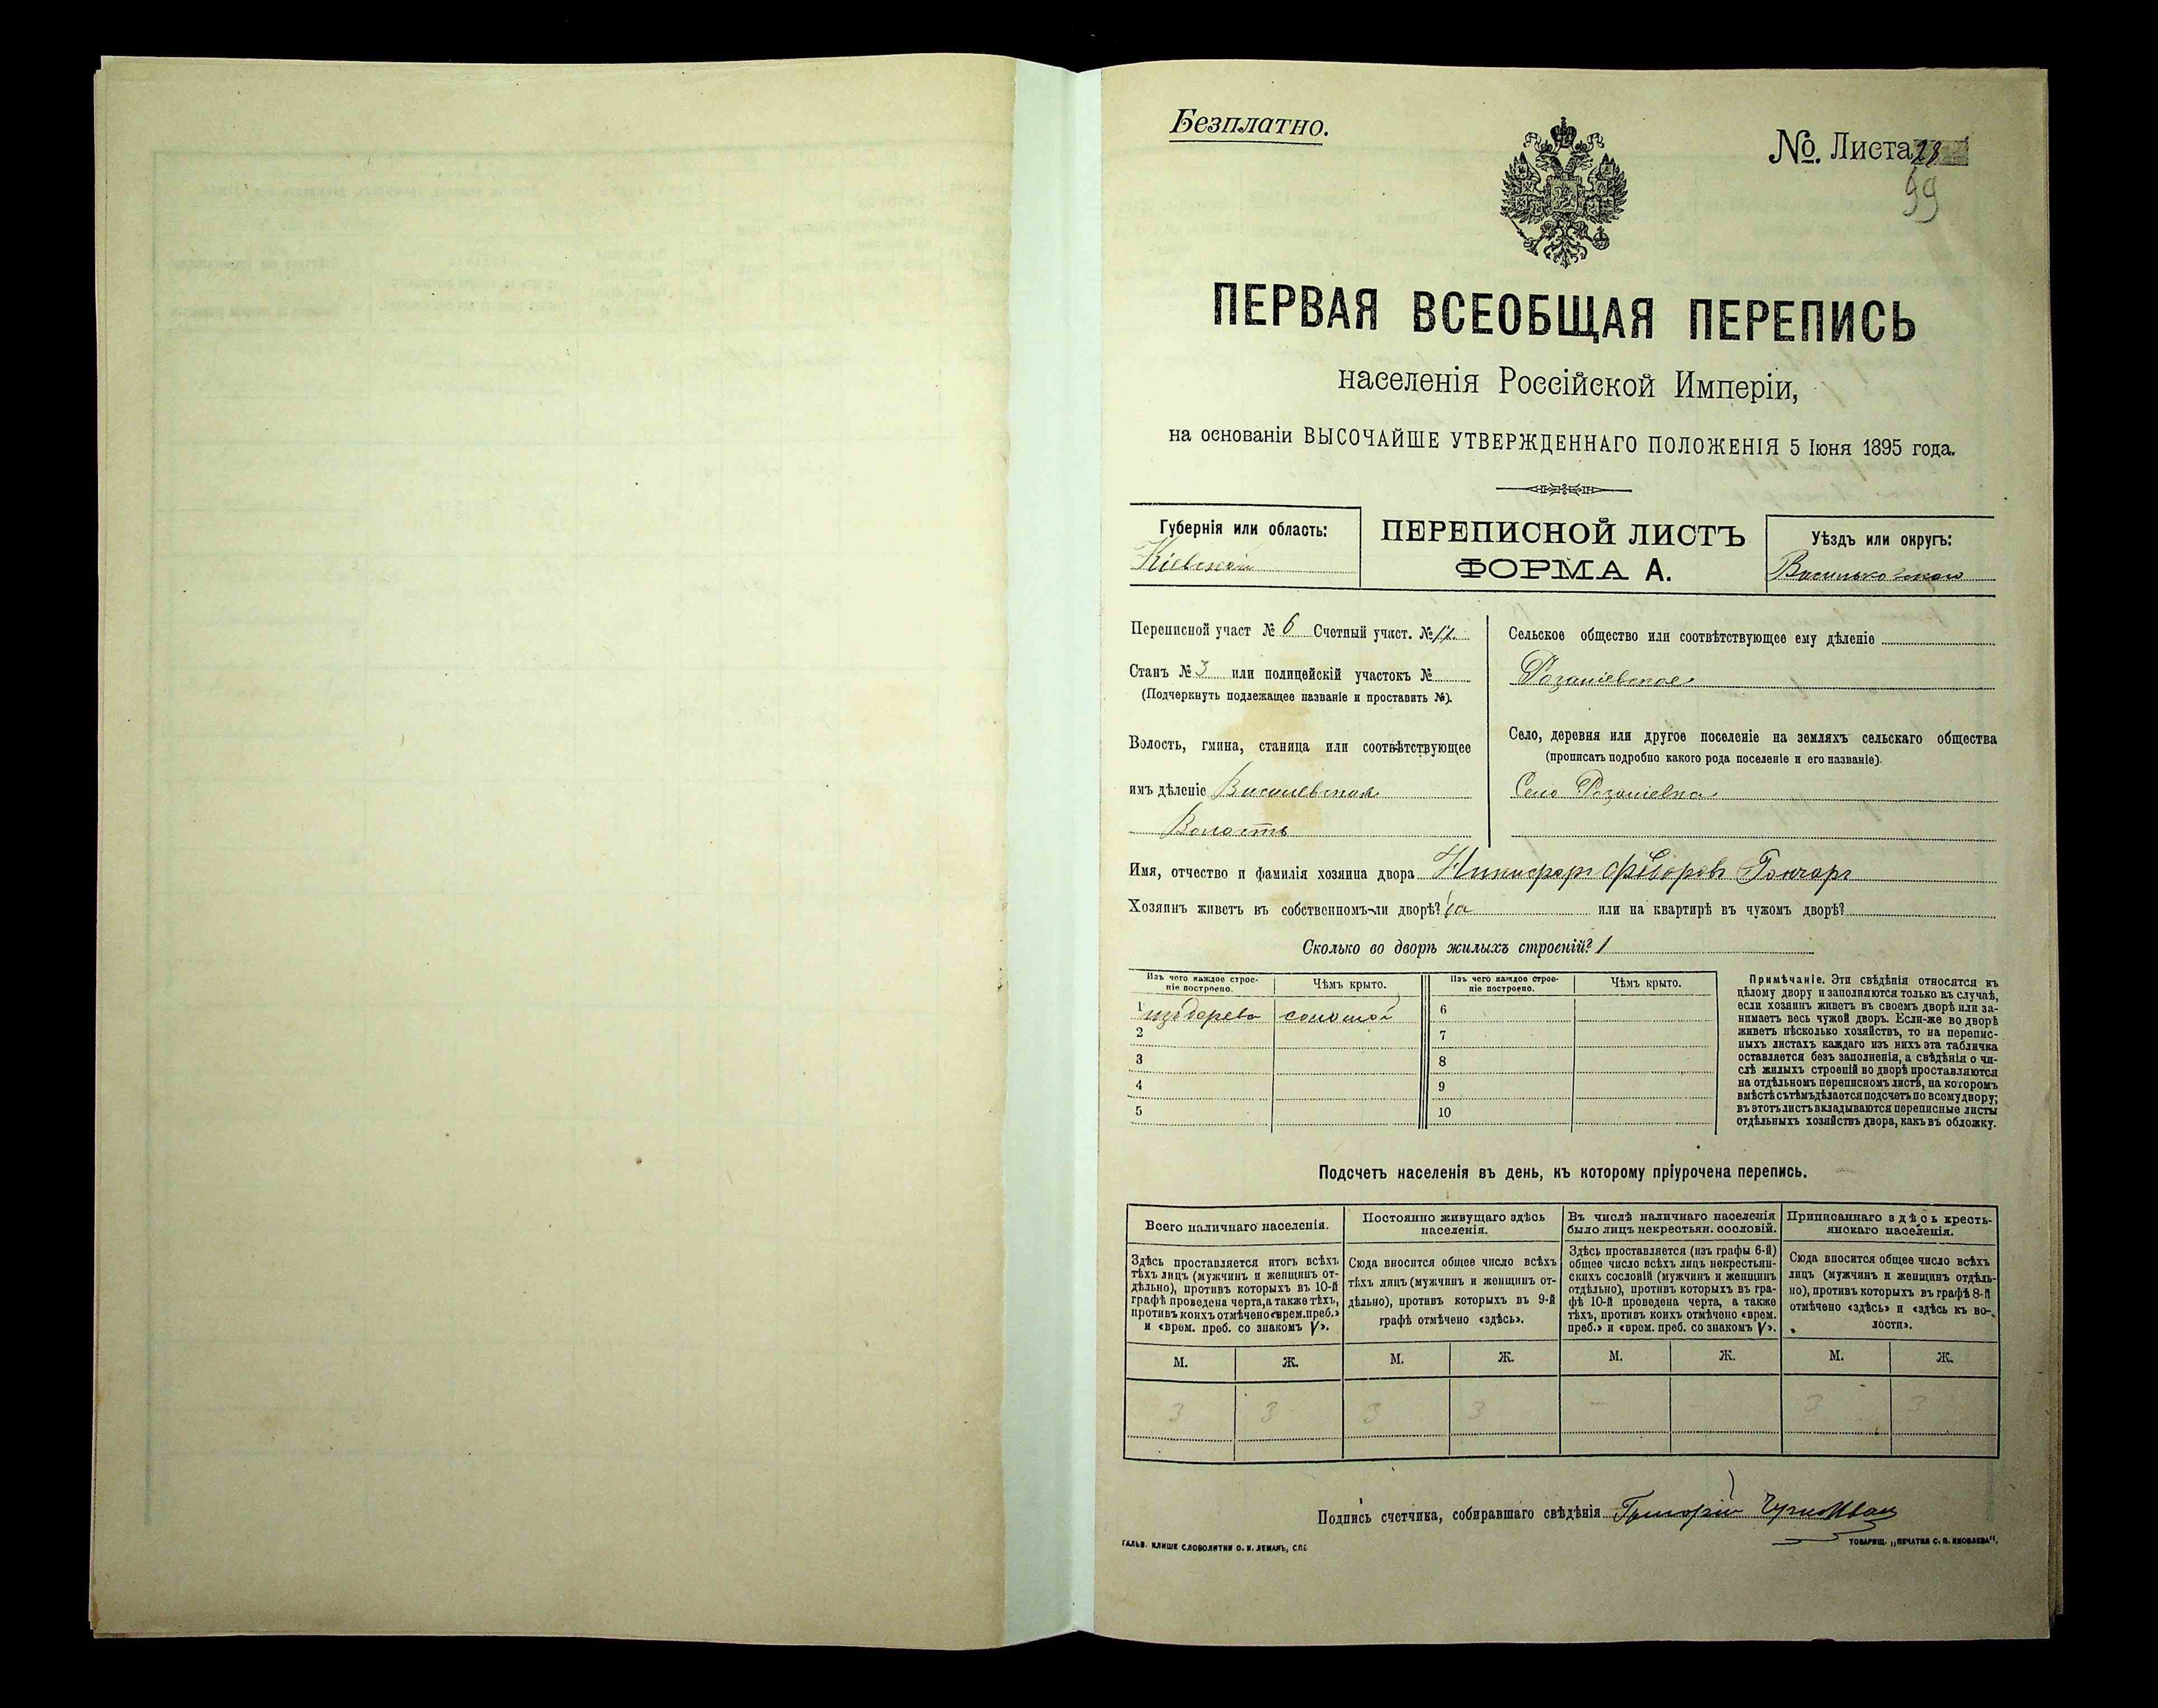 Безплатно.
№. Листа 28
99
ПЕРВАЯ ВСЕОБЩАЯ ПЕРЕПИСЬ
населенія Россійской Имперіи,
на основаніи ВЫСОЧАЙШЕ УТВЕРЖДЕННАГО ПОЛОЖЕНІЯ 5 Іюня 1895 года.
Губернія или область:
Кіевской
ПЕРЕПИСНОЙ ЛИСТЪ
ФОРМА А.
Уѣздъ или округъ:
Васильковскаго
Переписной участ № 6 Счетный участ. № 12
Станъ № 3 или полицейскій участокъ №
(Подчеркнуть подлежащее названіе и проставить №).
Волость, гмина, станица или соотвѣтствующее
имъ дѣленіе
Волость
Сельское общество или соотвѣтствующее ему дѣленіе
Село, деревня или другое поселеніе на земляхъ сельскаго общества
(прописать подробно какого рода поселеніе и его названіе).
Село
Имя, отчество и фамилія хозяина двора Никифоръ Федоровъ Гончаръ
Хозяинъ живетъ въ собственномъ-ли дворѣ? да или на квартирѣ въ чужомъ дворѣ?
Сколько во дворѣ жилыхъ строеній? 1
Изъ чего каждое строе-
ніе построено.
Чѣмъ крыто.
Изъ чего каждое строе-
ніе построено.
Чѣмъ крыто.
1 изъ дерева соломой 6
2 7
3 8
4 9
5 10
Примѣчаніе. Эти свѣдѣнія относятся къ
цѣлому двору и заполняются только въ случаѣ,
если хозяинъ живетъ въ своемъ дворѣ или за-
нимаетъ весь чужой дворъ. Если-же во дворѣ
живетъ нѣсколько хозяйствъ, то на перепис-
ныхъ листахъ каждаго изъ нихъ эта табличка
оставляется безъ заполненія, а свѣдѣнія о чи-
слѣ жилыхъ строеній во дворѣ проставляются
на отдѣльномъ переписномъ листѣ, на которомъ
вмѣстѣ съ тѣмъ дѣлается подсчетъ по всему двору;
въ этотъ листъ вкладываются переписные листы
отдѣльныхъ хозяйствъ двора, какъ въ обложку.
Подсчетъ населенія въ день, къ которому пріурочена перепись.
Всего наличнаго населенія.
Постоянно живущаго здѣсь
населенія.
Въ числѣ наличнаго населенія
было лицъ некрестьян. сословій.
Приписаннаго здѣсь кресть-
янскаго населенія.
Здѣсь проставляется итогъ всѣхъ
тѣхъ лицъ (мужчинъ и женщинъ от-
дѣльно), противъ которыхъ въ 10-й
графѣ проведена черта, а также тѣхъ,
противъ коихъ отмѣчено «врем. преб.»
и «врем. преб. со знакомъ V».
Сюда вносится общее число всѣхъ
тѣхъ лицъ (мужчинъ и женщинъ от-
дѣльно), противъ которыхъ въ 9-й
графѣ отмѣчено «здѣсь».
Здѣсь проставляется (изъ графы 6-й)
общее число всѣхъ лицъ некрестьян-
скихъ сословій (мужчинъ и женщинъ
отдѣльно), противъ которыхъ въ гра-
фѣ 10-й проведена черта, а также
тѣхъ, противъ коихъ отмѣчено «врем.
преб.» и «врем. преб. со знакомъ V».
Сюда вносится общее число всѣхъ
лицъ (мужчинъ и женщинъ отдѣль-
но), противъ которыхъ въ графѣ 8-й
отмѣчено «здѣсь» и «здѣсь къ во-
лости».
М. Ж. М. Ж. М. Ж. М. Ж.
3 3 3 3 — 3 3
Подпись счетчика, собиравшаго свѣдѣнія Григорій
ГАЛЬВ. КЛИШЕ СЛОВОЛИТНИ О. И. ЛЕМАНЪ, СПБ
ТОВАРИЩ. „ПЕЧАТНЯ С. П. ЯКОВЛЕВА“,